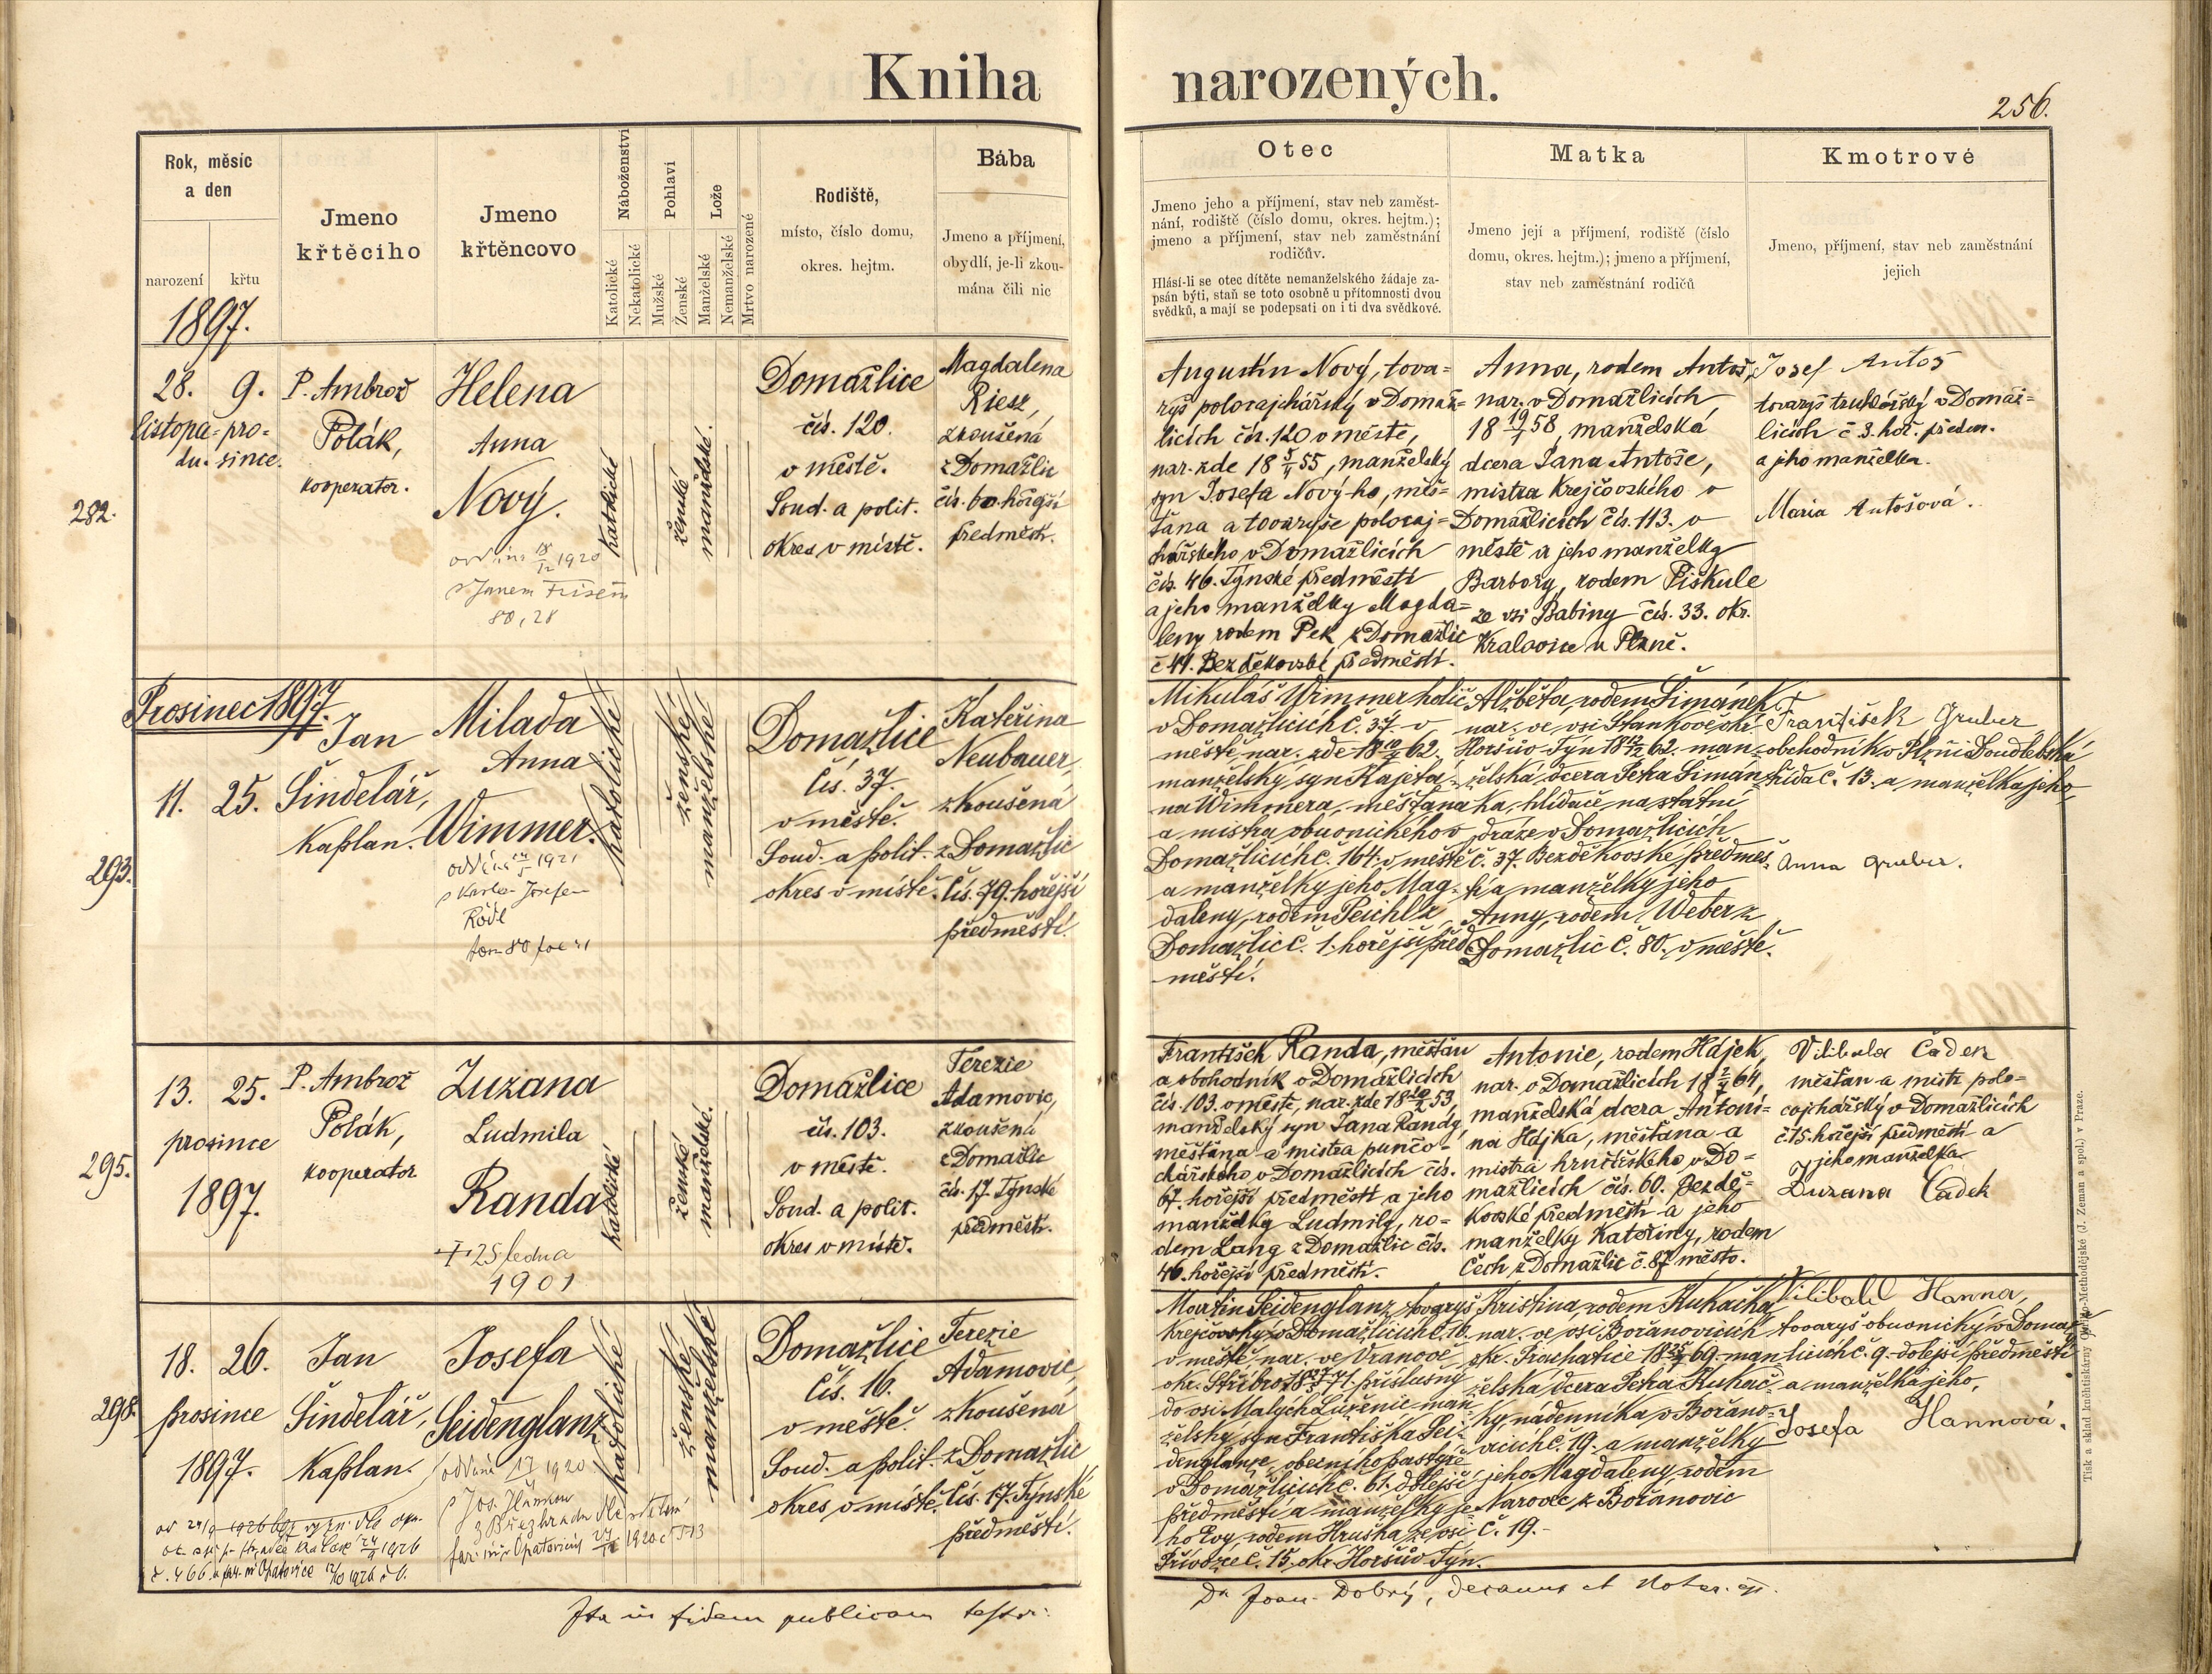 Kniha narozených.
256.
Rok, měsíc
a den
narození
křtu
Jmeno
křtěciho
Jmeno
křtěncovo
Náboženství
Katolické
Nekatolické
Pohlaví
Mužské
Ženské
Lože
Manželské
Nemanželské
Mrtvo narozené
Rodiště,
místo, číslo domu,
okres. hejtm.
Bába
Jmeno a příjmení,
obydlí, je-li zkou-
mána čili nic
Otec
Jmeno jeho a příjmení, stav neb zaměst-
nání, rodiště (číslo domu, okres. hejtm.);
jmeno a příjmení, stav neb zaměstnání
rodičův.
Hlásí-li se otec dítěte nemanželského žádaje za-
psán býti, staň se toto osobně u přítomnosti dvou
svědků, a mají se podepsati on i ti dva svědkové.
Matka
Jmeno její a příjmení, rodiště (číslo
domu, okres. hejtm.); jmeno a příjmení,
stav neb zaměstnání rodičů
Kmotrové
Jmeno, příjmení, stav neb zaměstnání
jejich
1897.
282.
28. 9.
listopa= pro=
du. since.
P. Ambrož
Polák,
kooperator.
Helena
Anna
Nový.
18/12 1920
s Janem
80, 28
katolické
ženské
manželské.
Domažlice
čís. 120.
v městě.
Soud. a polit.
okres v místě.
Magdalena
Riesz,
zkoušená
z Domažlic
čís. 60. hořejší
předměstí.
Augustin Nový, tova=
ryš polocajchářský v Domaž=
licích čís. 120 v městě,
nar. zde 18 5/4 55, manželský
syn Josefa Nový-ho, měš=
ťana a tovaryše polocaj=
chářského v Domažlicích
čís. 46. Týnské předměstí
a jeho manželky Magda=
leny rodem Pek z Domažlic
č 41. Bezděkovské předměstí.
Anna, rodem Antoš,
nar. v Domažlicích
18 19/7 58, manželská
dcera Jana Antoše,
mistra krejčovského v
Domažlicích čís. 113. v
městě a jeho manželky
Barbory, rodem Piškule
ze vsi Babiny čís. 33. okr.
Kralovice u Plzně.
Josef Antoš
tovaryš truhlářský v Domaž=
licích č 3. hoř. předm.
a jeho manželka.
Maria Antošová.
Prosinec 1897.
293.
11. 25.
Jan
Šindelář,
kaplan.
Milada
Anna
Wimmer.
1921
s Karlem Josefem
Rödl
tom 80 fol 41
katolické
ženské
manželské
Domažlice
čís. 37.
v městě.
Soud. a polit.
okres v místě.
Kateřina
Neubauer,
zkoušená
z Domažlic
čís. 79. hořejší
předměstí.
Mikuláš Wimmer holič
v Domažlicích č. 37. v
městě, nar. zde 62.
manželský syn Kajetá-
na Wimmera, měšťana
a mistra obuvnického v
Domažlicích č. 164. v městě
a manželky jeho Mag-
daleny, rodem Peichl z
Domažlic č. 1. hořejší před-
městí.
Alžběta, rodem Šimánek,
nar. ve vsi Staňkově okr.
Horšův Týn 62. man-
želská dcera Petra Šimán-
ka, hlídače na státní
dráze v Domažlicích
č. 37. Bezděkovské předměs-
tí a manželky jeho
Anny, rodem Weber z
Domažlic č. 80. v městě.
František Gruber
obchodník v Plzni Doudlebská
třída č. 13. a manželka jeho,
Anna Gruber.
295.
13. 25.
prosince
1897.
P. Ambrož
Polák,
kooperator
Zuzana
Ludmila
Randa
† 25 ledna
1901
katolické
ženské
manželské.
Domažlice
čís. 103.
v městě.
Soud. a polit.
okres v místě.
Terezie
Adamovic,
zkoušená
z Domažlic
čís. 17. Týnské
předměstí.
František Randa, měšťan
a obchodník v Domažlicích
čís. 103. v městě, nar. zde 53,
manželský syn Jana Randy,
měšťana a mistra punčo-
chářského v Domažlicích čís.
67. hořejší předměstí a jeho
manželky Ludmily, ro=
dem Lang z Domažlic čís.
46. hořejší předměstí.
Antonie, rodem Hájek,
nar. v Domažlicích 64,
manželská dcera Antoní=
na Hájka, měšťana a
mistra hrnčířského v Do=
mažlicích čís. 60. Bezdě=
kovské předměstí a jeho
manželky Kateřiny, rodem
Čech z Domažlic č. 87 město.
Vilibald Čadek
měšťan a mistr polo=
cajchářský v Domažlicích
č. 15. hořejší předměstí a
jeho manželka
Zuzana Čadek
298.
18. 26.
prosince
1897.
Jan
Šindelář,
kaplan.
Josefa
Seidenglanz
1920
katolické
ženské
manželské
Domažlice
čís. 16.
v městě.
Soud. a polit.
okres v místě.
Terezie
Adamovic,
zkoušená
z Domažlic
čís. 17. Týnské
předměstí.
Martin Seidenglanz, tovaryš
krejčovský v Domažlicích č. 16.
v městě, nar. ve Vranově
okr. Stříbro 71. příslušný
do vsi Malých Luženic man-
želský syn Františka Sei-
denglanze, obecního pastýře
v Domažlicích č. 61. dolejší
předměstí a manželky je-
ho Evy, rodem Hruška ze vsi
Přívozce č. 15. okr. Horšův Týn.
Kristina, rodem Kukačka,
nar. ve vsi Bořanovicích
okr. Prachatice 69. man-
želská dcera Petra Kukač-
ky, nádenníka v Bořano-
vicích č. 19. a manželky
jeho Magdaleny, rodem
Narovec z Bořanovic
č. 19.-
Vilibald Hanna,
tovaryš obuvnický v Domaž-
licích č. 9. dolejší předměstí
a manželka jeho,
Josefa Hannová.
Ita in fidem publicam testor:
Dr Joan. Dobrý, decanus et Notar. ep.
Tisk a sklad knihtiskárny Cyrillo-Methodějské (J. Zeman a spol.) v Praze.